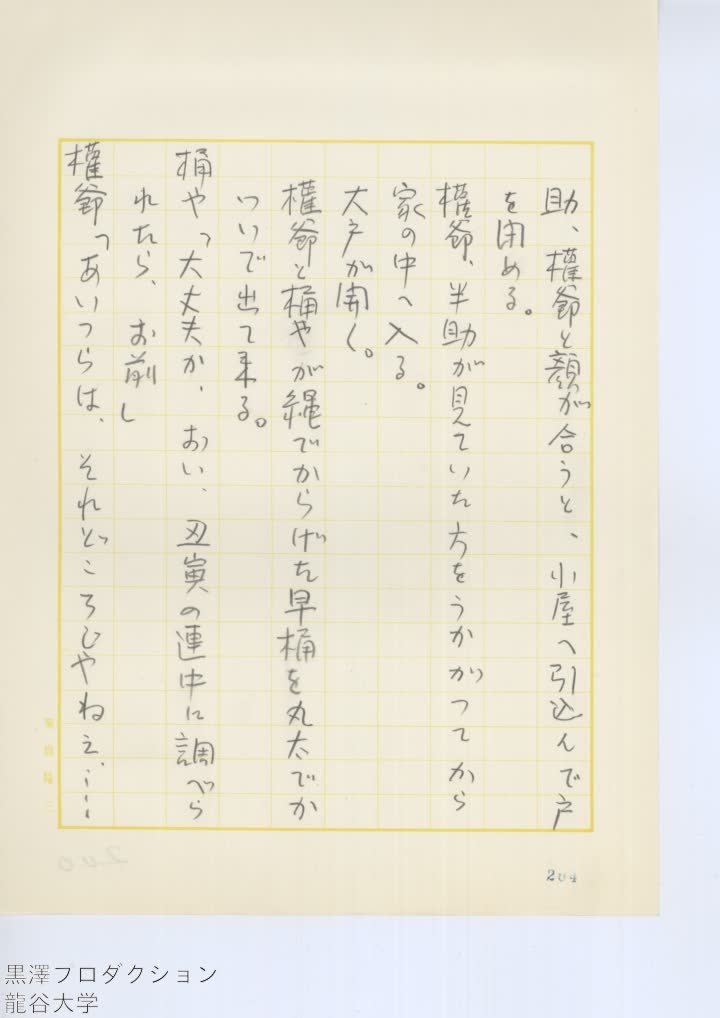 助、權爺と顔が合うと、小屋へ引込んで戸
を閉める。
權爺、半助が見ていた方をうかがつてから
家の中へ入る。
大戸が開く。
權爺と桶やが繩でからげた早桶を丸太でか
ついで出て来る。
桶や「大丈夫か、おい、丑寅の連中に調べら
れたら、お前」
權爺「あいつらは、それどころじやねえ、……
204
200
黒澤プロダクション
龍谷大学